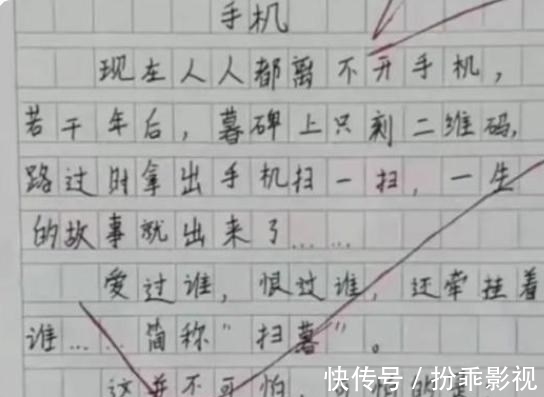 手机
现在人人都离不开手机，
若干年后，暮碑上只刻二维码，
路过时拿出手机扫一扫，一生
的故事就出来了……
爱过谁，恨过谁，还牵挂着
谁……简称“扫暮”。
这并不可怕，可怕的是
快传号／扮乖影视